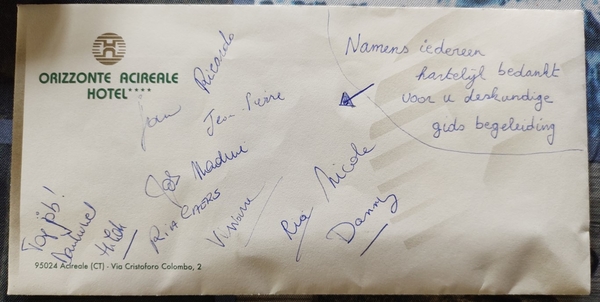 ORIZZONTE ACIREALE
HOTEL****
Namens iedereen
hartelijk bedankt
voor u deskundige
gids begeleiding
Ricardo
Jean-Pierre
Jos Nadine
Ria
Viviane
Ria Nicole
Danny
Top job!
Hilde
95024 Acireale (CT) - Via Cristoforo Colombo, 2